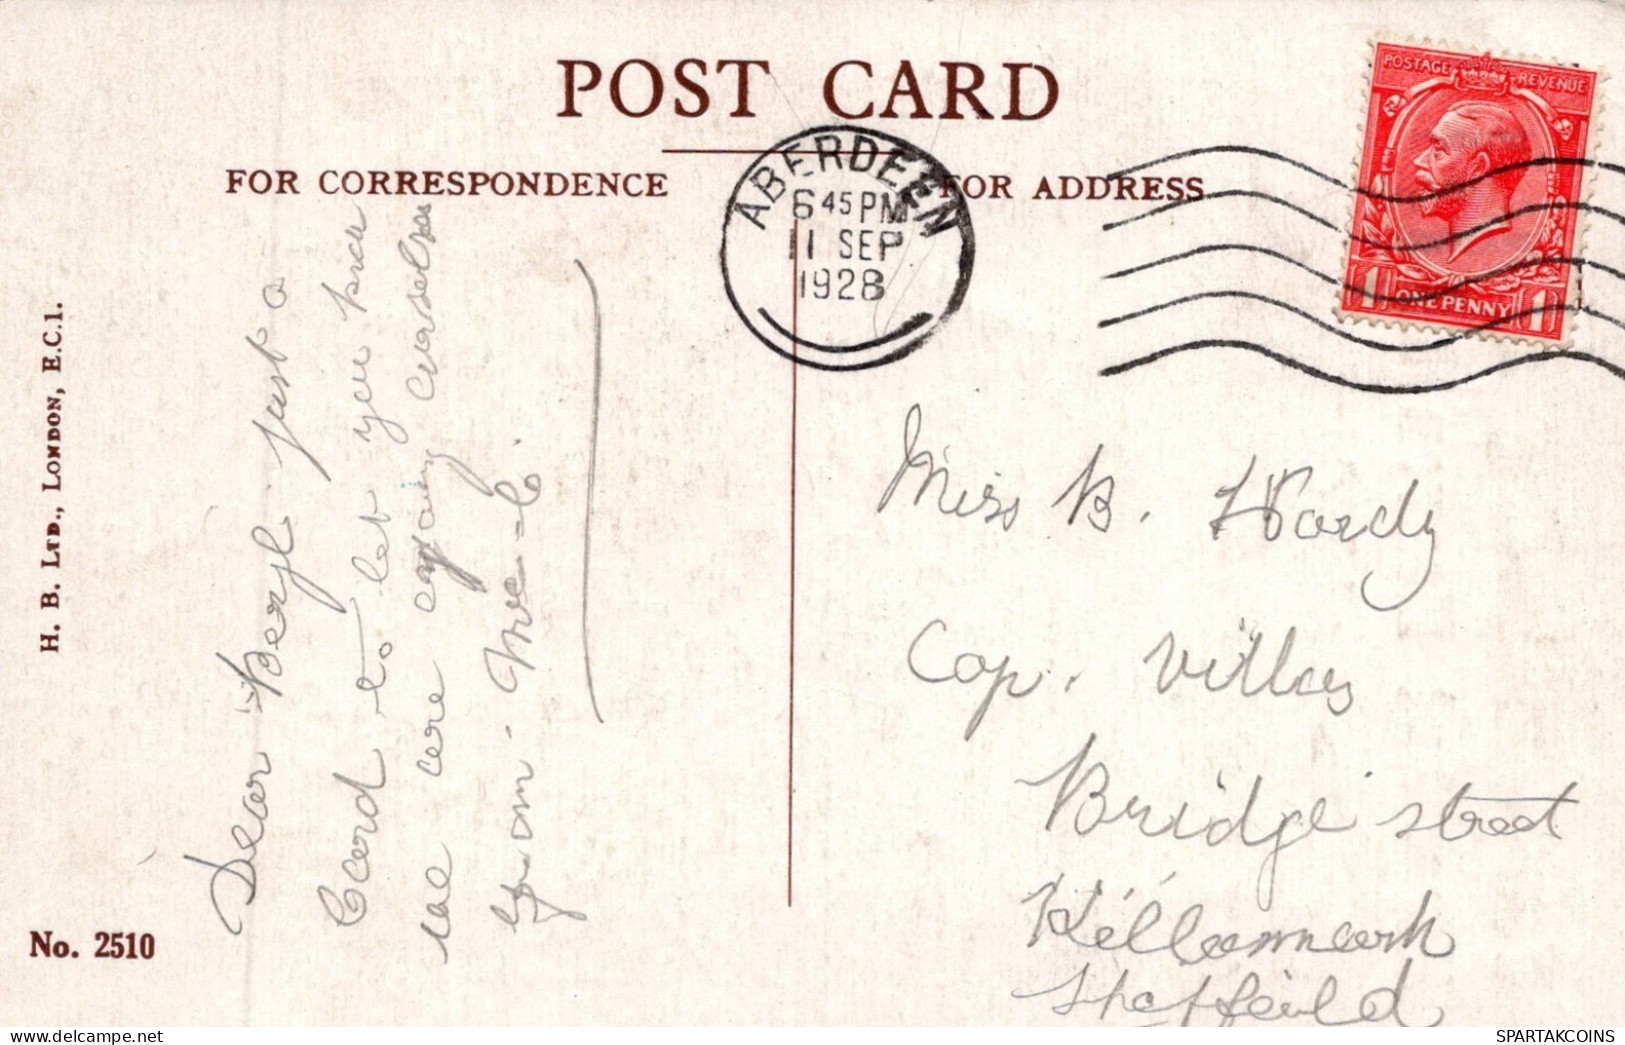 POST CARD
FOR CORRESPONDENCE
FOR ADDRESS
ABERDEEN
6 45 PM
11 SEP
1928
POSTAGE REVENUE
1 ONE PENNY 1
H. B. LTD., LONDON, E.C.1.
No. 2510
Dear Beryl just a
Card to let you know
we are enjoying ourselves
from
Miss B. Hardy
Cop. Villas
Bridge street
Killamarsh
Sheffeild
SPARTAKCOINS